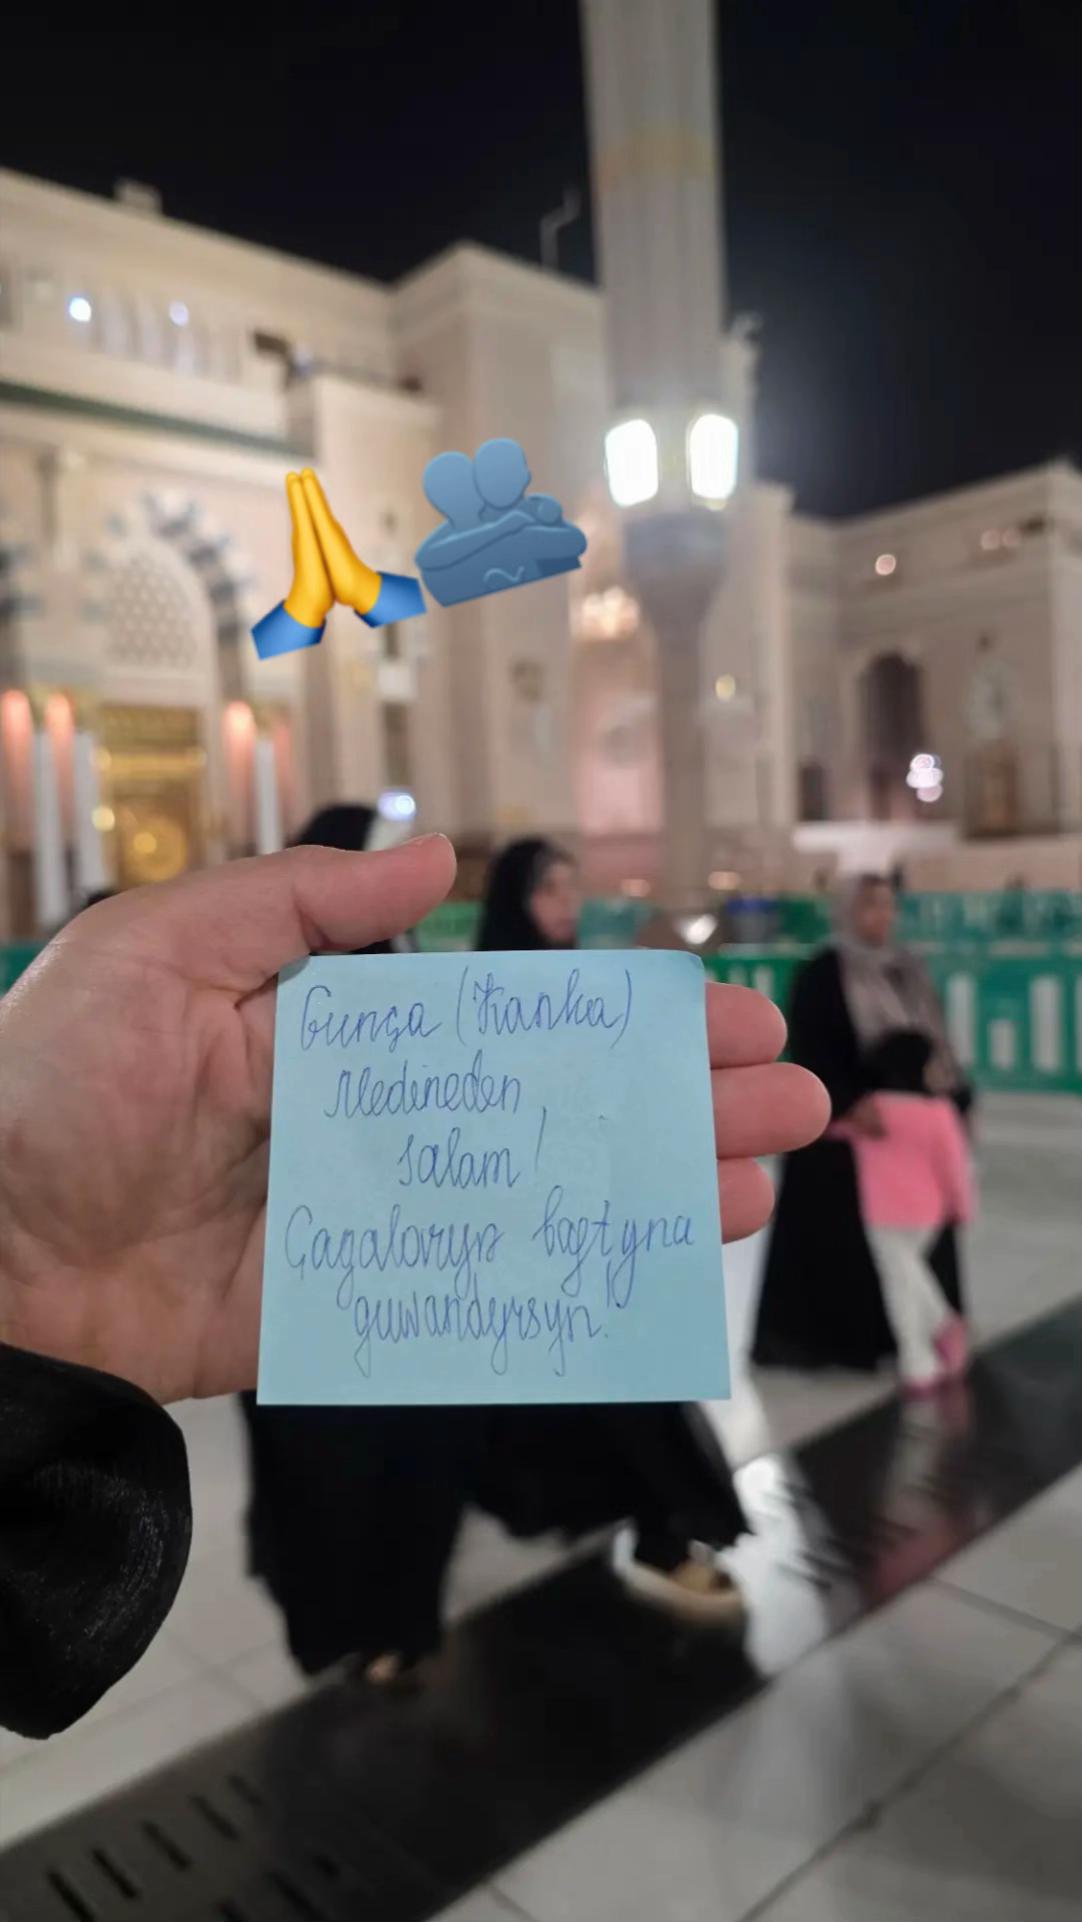 Gunça (Kanka)
Medineden
salam!
Çagalaryň bagtyna
guwandyrsyn!